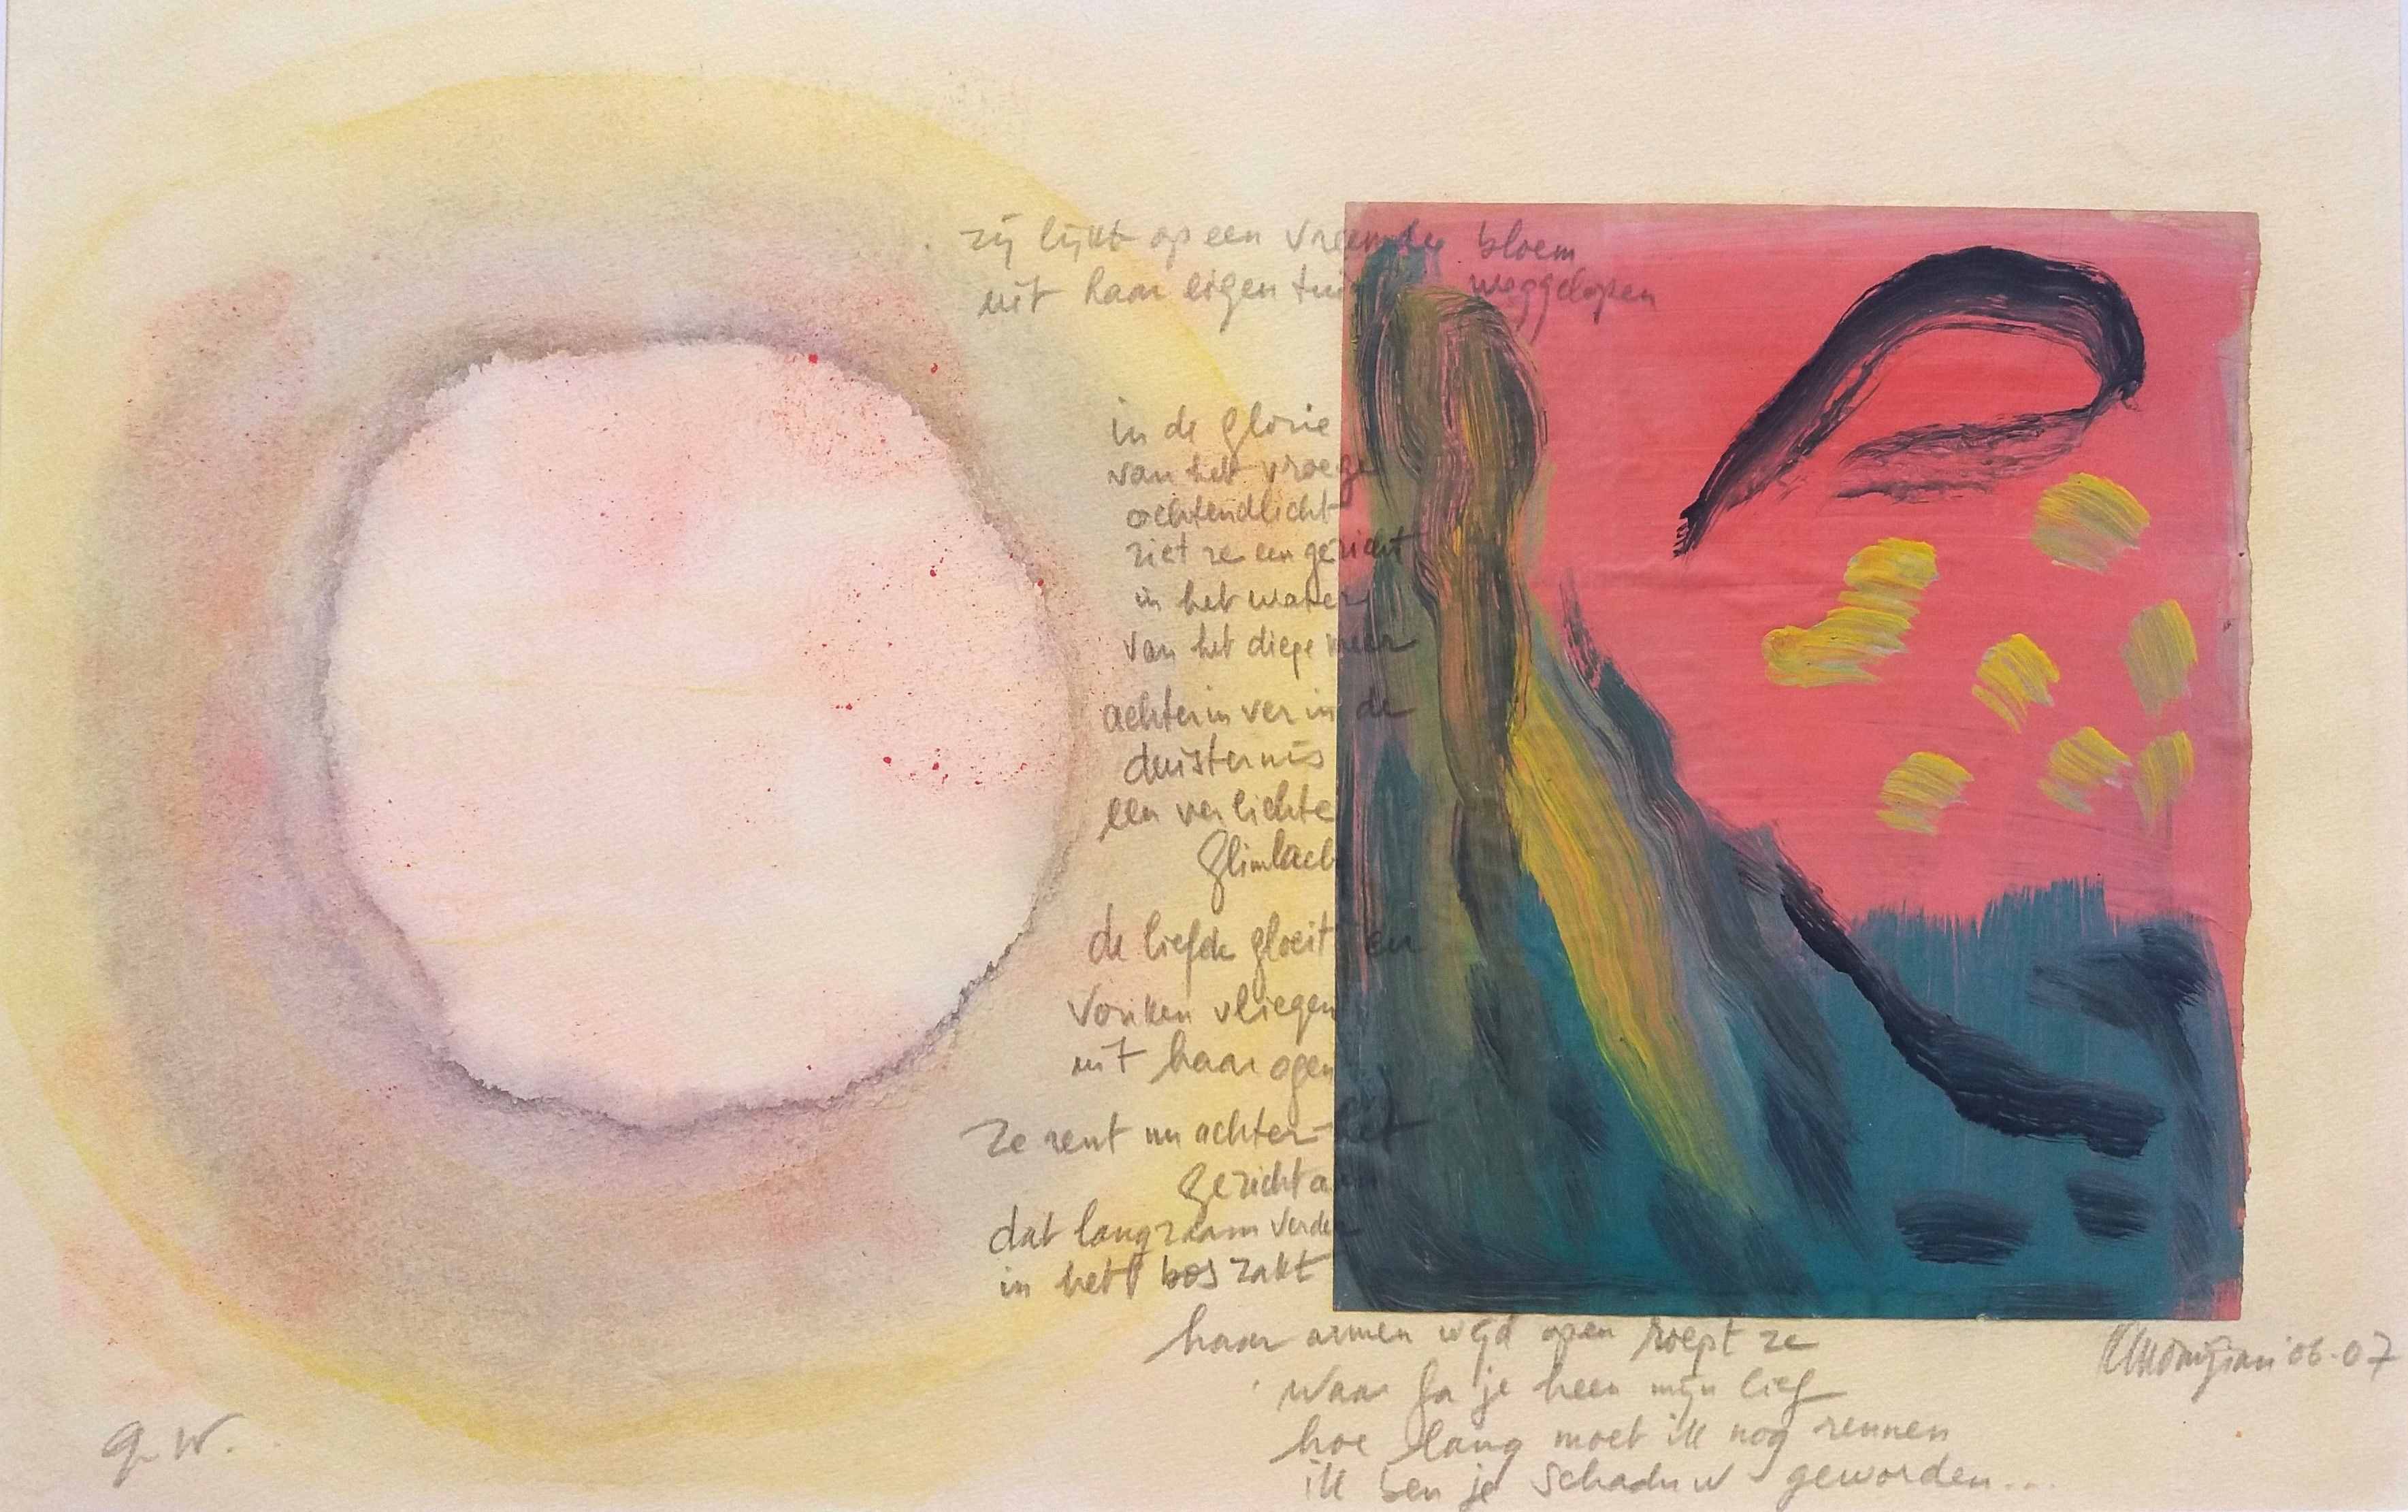 zij lijkt op een vreemde bloem
uit haar eigen tuin weggelopen
in de glorie
van het vroege
ochtendlicht
ziet ze een gezicht
in het water
van het diepe meer
achterin ver in de
duisternis
een verlichte
glimlach
de liefde gloeit en
vonken vliegen
uit haar ogen
ze rent nu achter het
gezicht aan
dat langzaam verder
in het bos zakt
haar armen wijd open roept ze
waar ga je heen mijn lief
hoe lang moet ik nog rennen
ik ben je schaduw geworden...
'06-07
G.W.